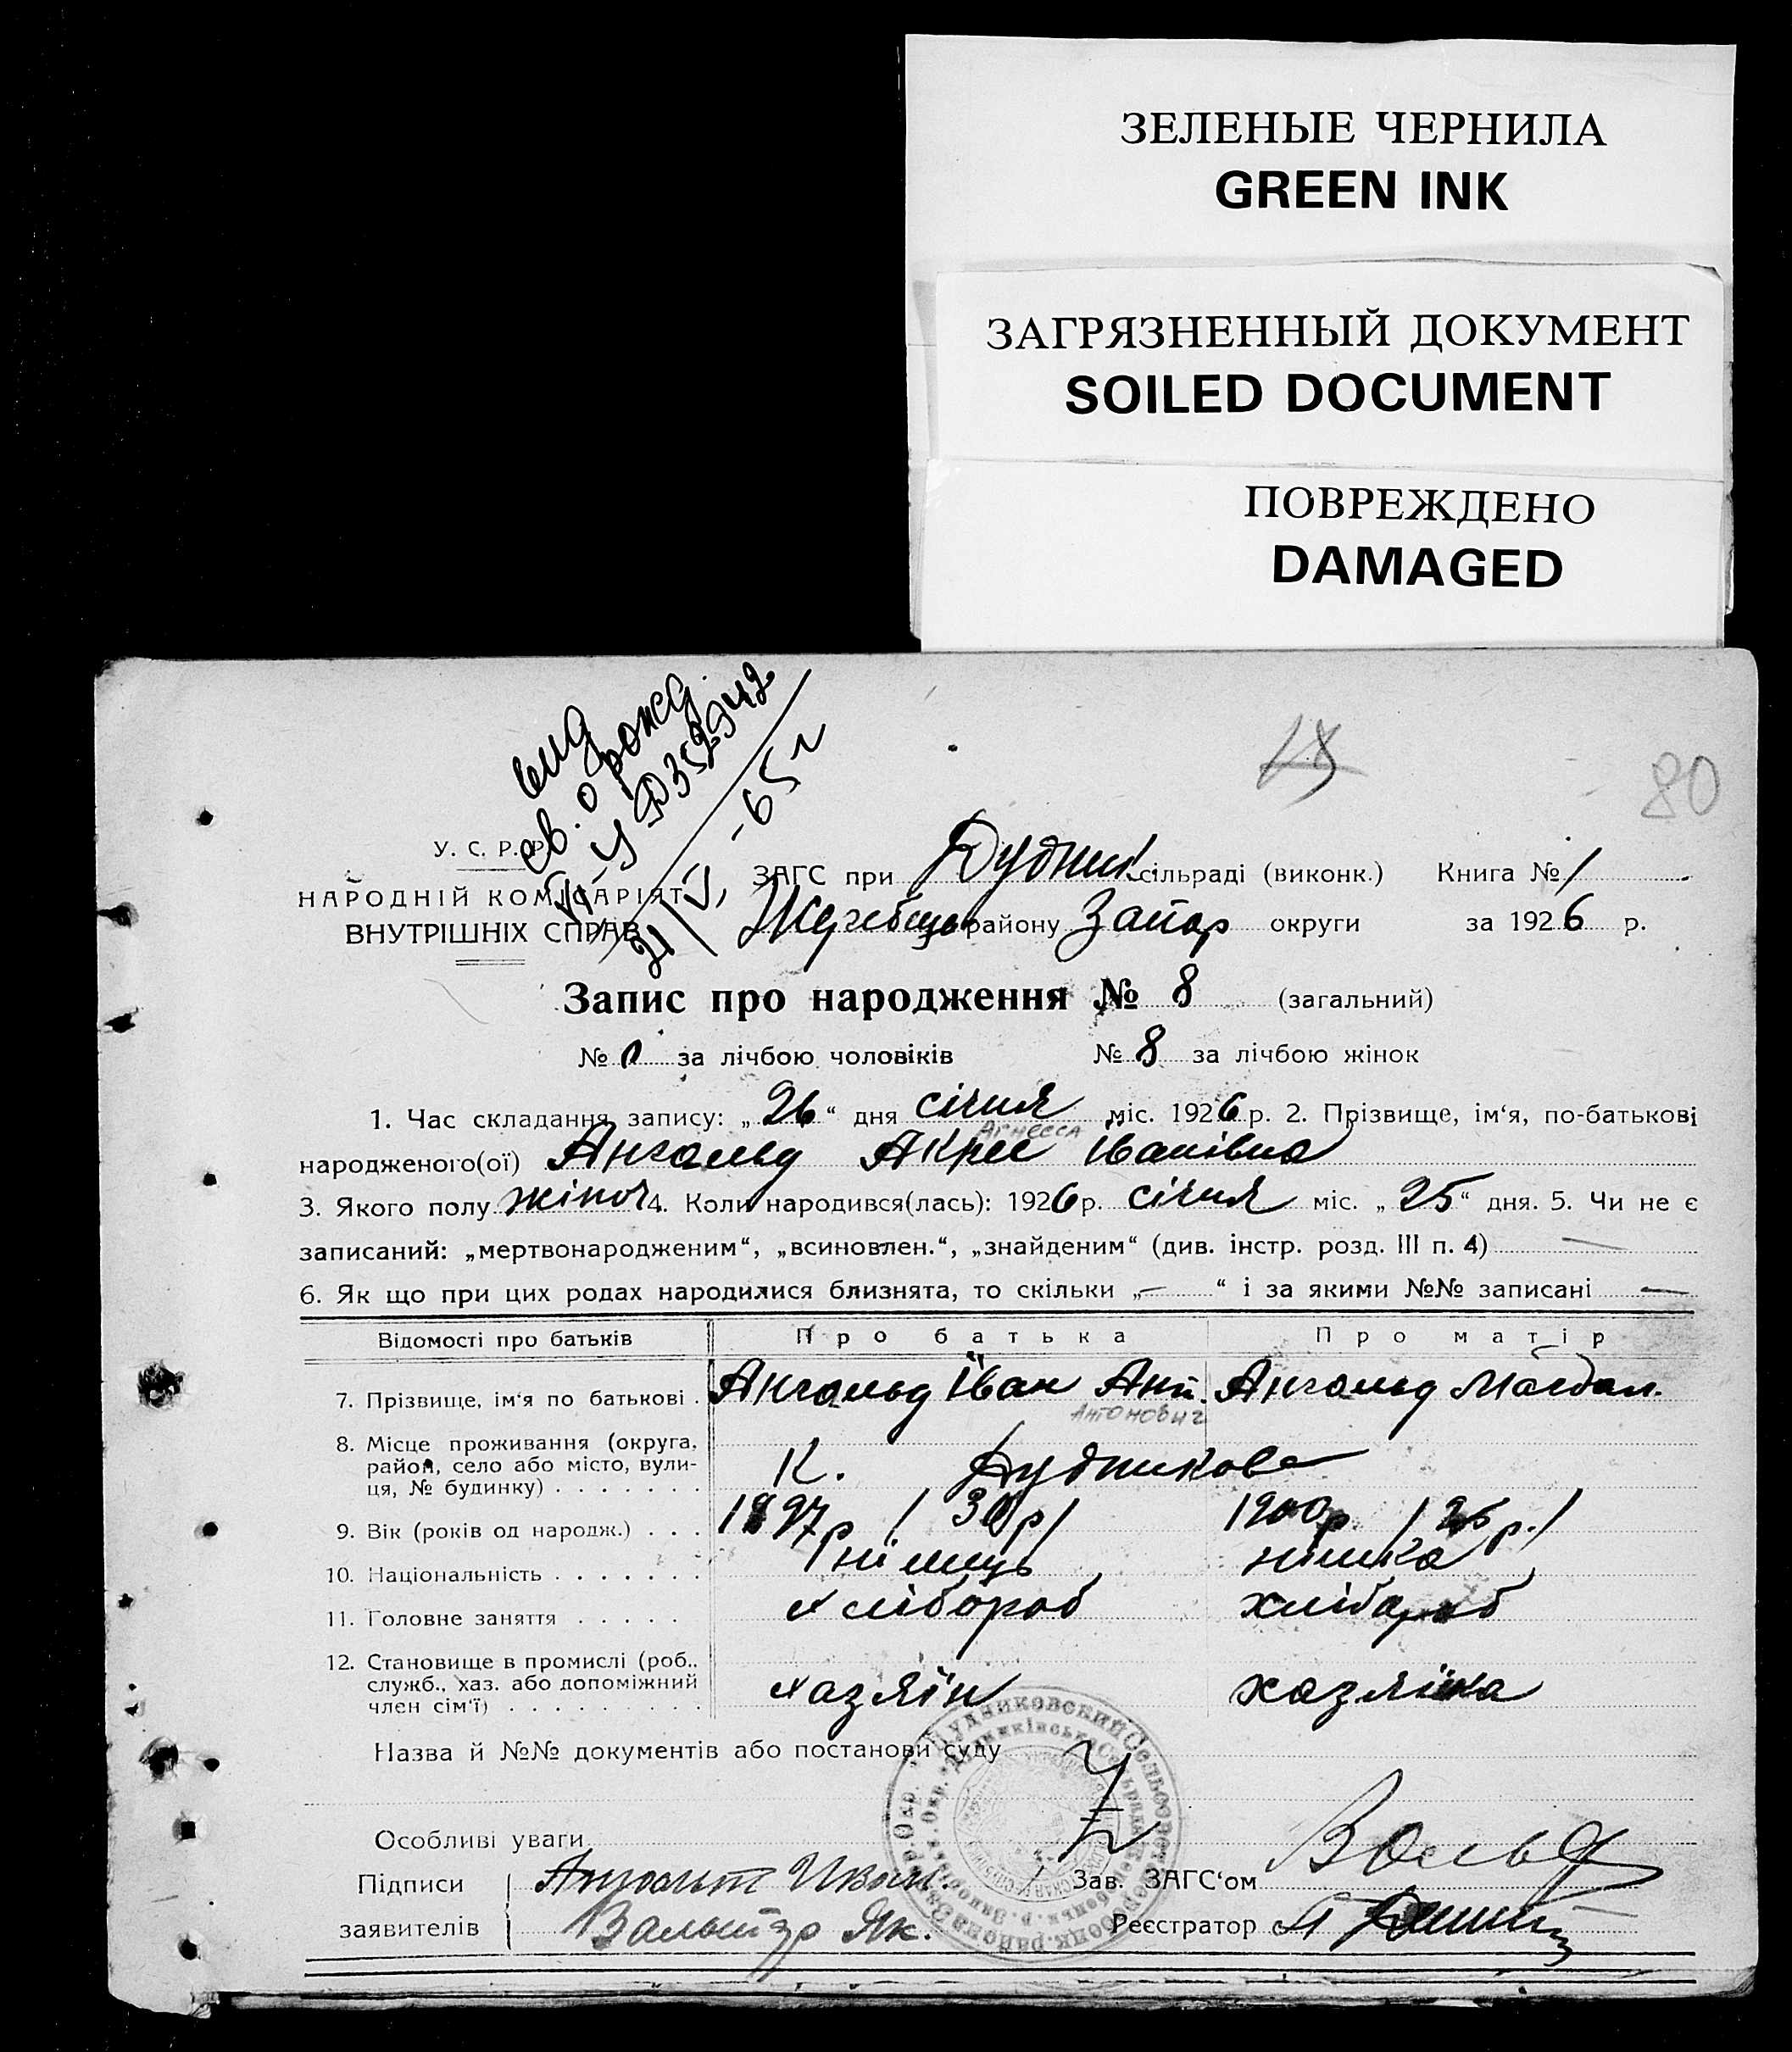 ЗЕЛЕНЫЕ ЧЕРНИЛА
GREEN INK
ЗАГРЯЗНЕННЫЙ ДОКУМЕНТ
SOILED DOCUMENT
ПОВРЕЖДЕНО
DAMAGED
18
80
св. о рожд.
21/V -65 г
У. С. Р. Р.
НАРОДНІЙ КОМІСАРІЯТ
ВНУТРІШНІХ СПРАВ
ЗАГС при Дудник сільраді (виконк.) Книга № 1
району Запор округи за 1926 р.
Запис про народження № 8 (загальний)
№ 0 за лічбою чоловіків № 8 за лічбою жінок
1. Час складання запису: „26“ дня січня міс. 1926 р. 2. Прізвище, ім‘я, по-батькові
Агнесса
народженого(ої) Ангальд Акнес Іванівна
3. Якого полу жіноч 4. Коли народився(лась): 1926 р. січня міс. „25“ дня. 5. Чи не є
записаний: „мертвонародженим“, „всиновлен.“, „знайденим“ (див. інстр. розд. III п. 4) —
6. Як що при цих родах народилися близнята, то скільки „—“ і за якими №№ записані —
Відомості про батьків Про батька Про матір
7. Прізвище, ім‘я по батькові . Ангальд Іван Ант. Ангальд Магдал.
Антонович
8. Місце проживання (округа,
район, село або місто, вули-
ця, № будинку) . . . . . . . К. Дудникове
9. Вік (років од народж.) . . . 1897 р /30 р/ 1900 р. /26 р./
10. Національність . . . . . . . німець німка
11. Головне заняття . . . . . хлібороб хлібороб
12. Становище в промислі (роб..
служб., хаз. або допоміжний
член сім‘ї) . . . . . . . . . хазяїн хазяїка
Назва й №№ документів або постанови суду
Особливі уваги
Підписи Ангольт Иван. Зав. ЗАГС‘ом Вольф
заявителів Вальтер Як. Реєстратор